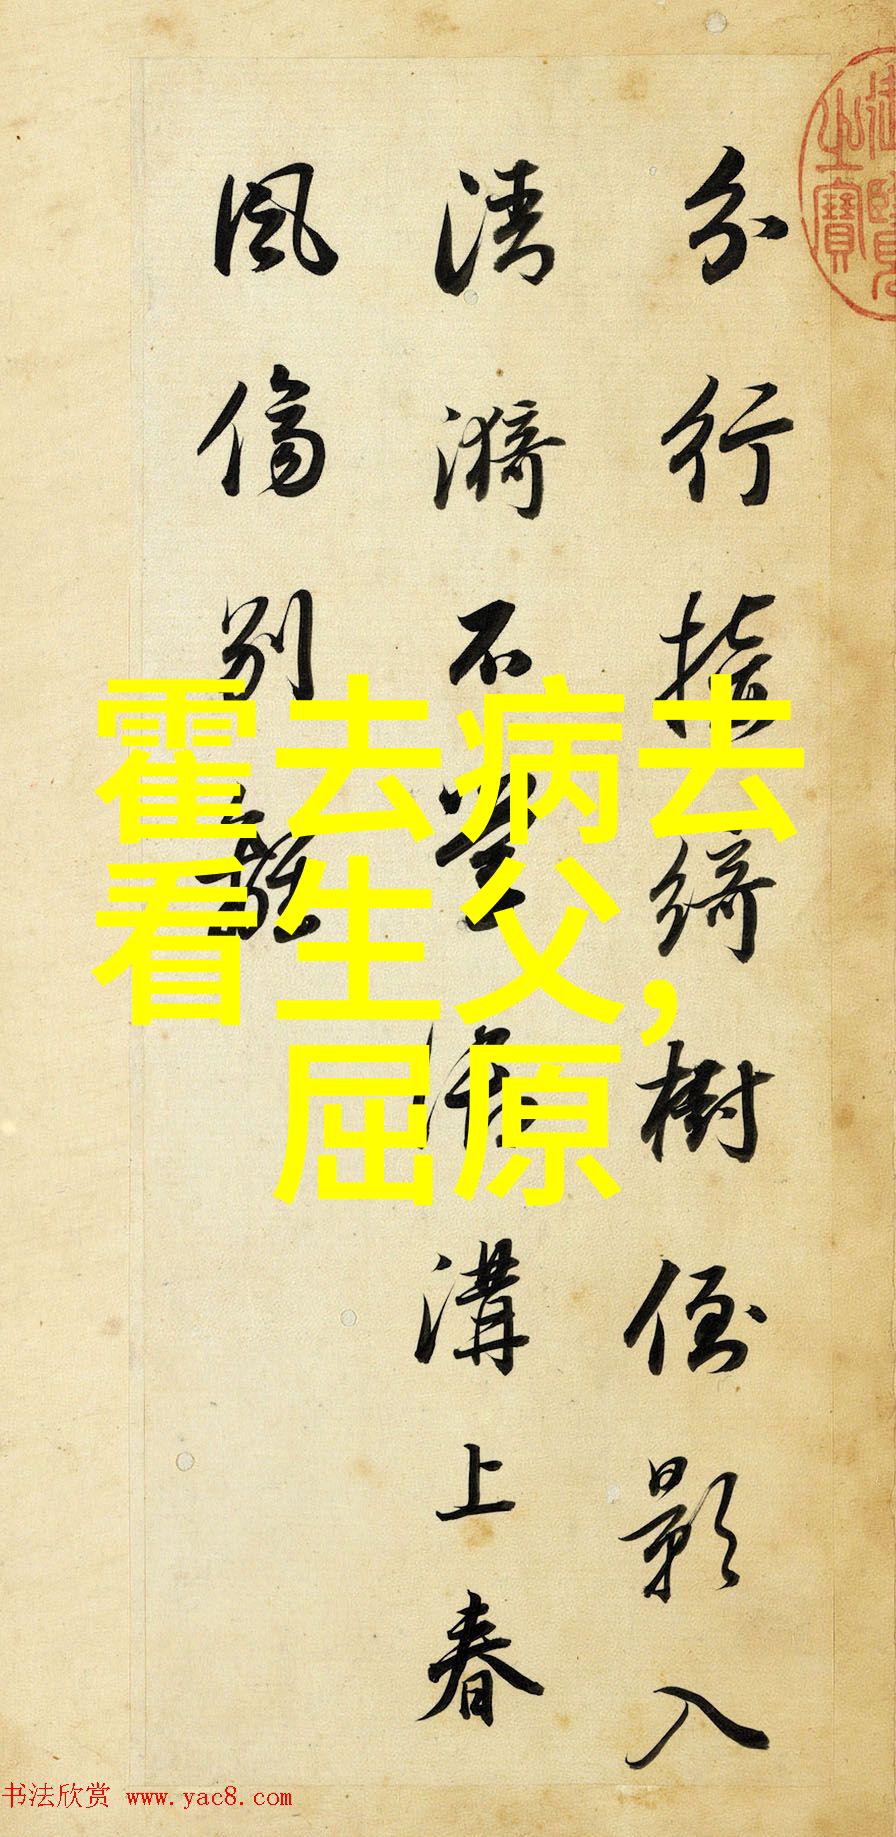 分行接綺樹倒影入
清漪不學御溝上春
風傷別離
霍去病去
看生父,
屈原
书法欣赏 www.yac8.com